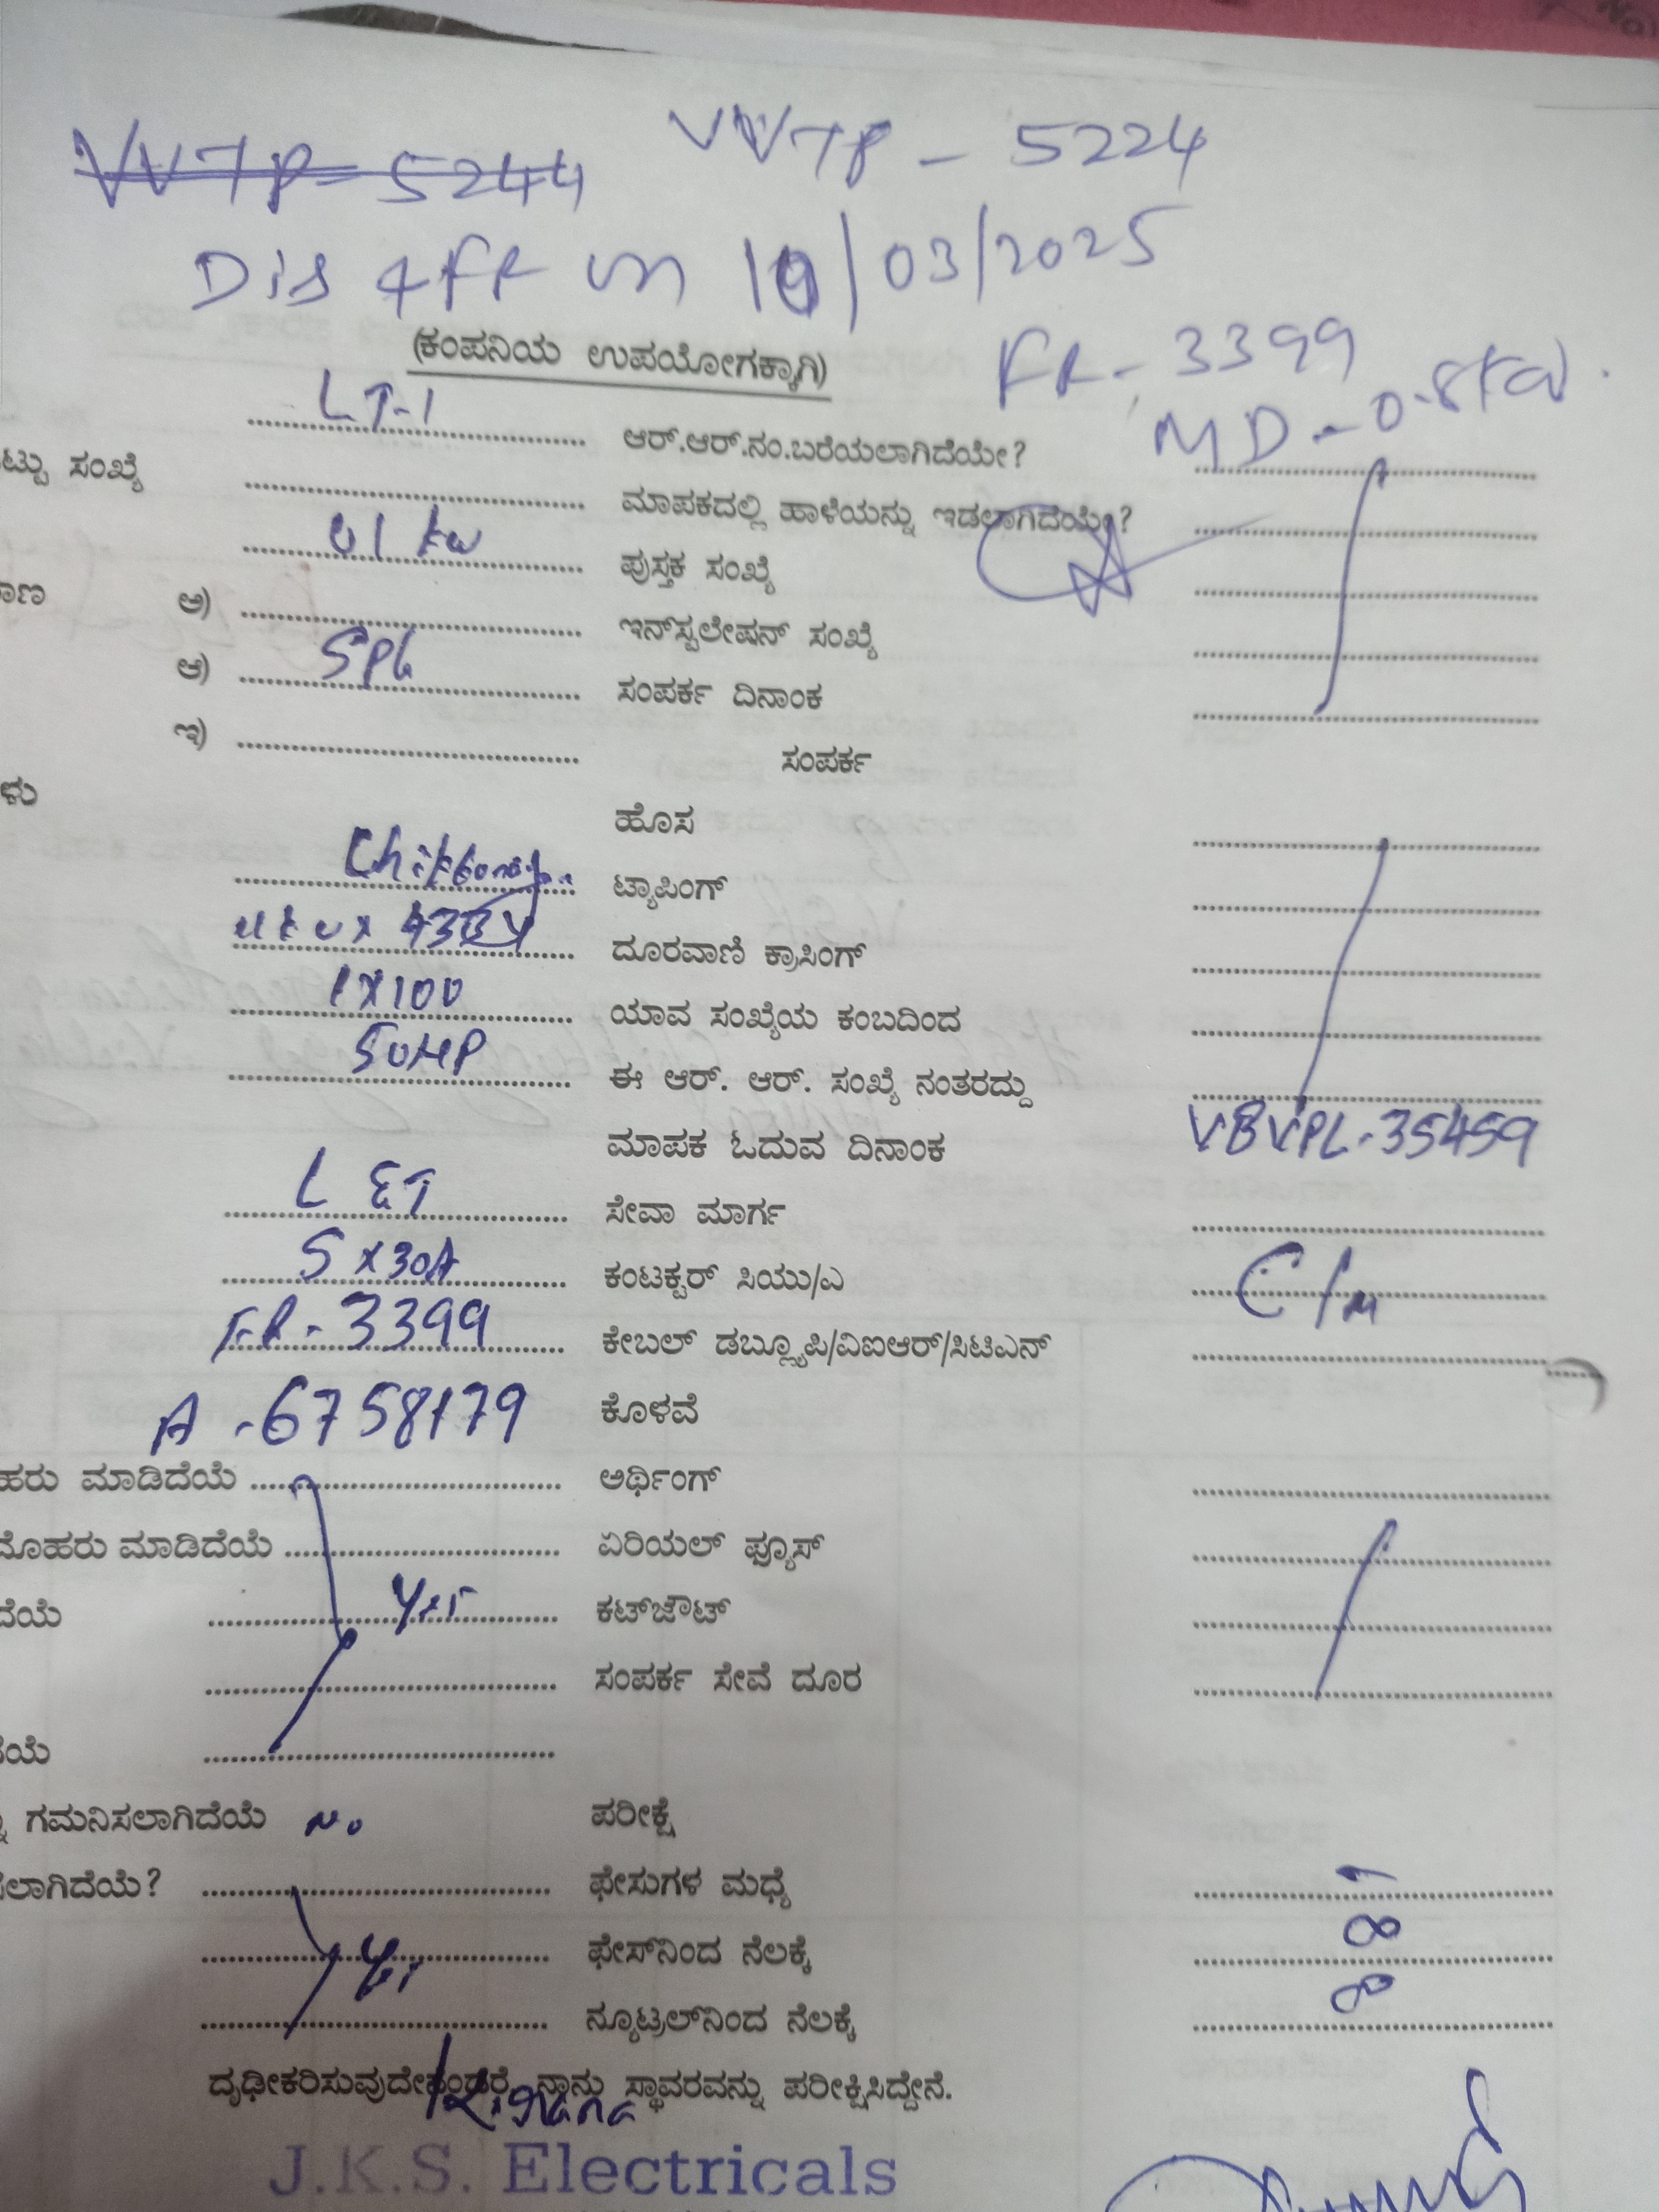 VVTP - 5244 VVTP - 5224
Dis 4 FR on 10/03/2025
(ಕಂಪನಿಯ ಉಪಯೋಗಕ್ಕಾಗಿ)
FR - 3399
MD - 0.8 KW.
LT-1 ಆರ್.ಆರ್.ನಂ.ಬರೆಯಲಾಗಿದೆಯೇ?
ಟ್ಟು ಸಂಖ್ಯೆ ಮಾಪಕದಲ್ಲಿ ಹಾಳೆಯನ್ನು ಇಡಲಾಗಿದೆಯೇ?
01 KW ಪುಸ್ತಕ ಸಂಖ್ಯೆ
ಅ) ಇನ್‌ಸ್ಪಲೇಷನ್ ಸಂಖ್ಯೆ
ಆ) SPL ಸಂಪರ್ಕ ದಿನಾಂಕ
ಇ) ಸಂಪರ್ಕ
ಳು ಹೊಸ
ಟ್ಯಾಪಿಂಗ್
ದೂರವಾಣಿ ಕ್ರಾಸಿಂಗ್
1X100 ಯಾವ ಸಂಖ್ಯೆಯ ಕಂಬದಿಂದ
50HP ಈ ಆರ್. ಆರ್. ಸಂಖ್ಯೆ ನಂತರದ್ದು
ಮಾಪಕ ಓದುವ ದಿನಾಂಕ VBVPL-35459
L &T ಸೇವಾ ಮಾರ್ಗ
5 X30A ಕಂಟಕ್ಟರ್ ಸಿಯು/ಎ
FR - 3399 ಕೇಬಲ್ ಡಬ್ಲ್ಯೂಪಿ/ವಿಐಆರ್/ಸಿಟಿಎನ್
A - 6758179 ಕೊಳವೆ
ಹರು ಮಾಡಿದೆಯೆ ಅರ್ಥಿಂಗ್
ಮೊಹರು ಮಾಡಿದೆಯೆ ಏರಿಯಲ್ ಫ್ಯೂಸ್
ದೆಯೆ Yes ಕಟ್‌ಜೌಟ್
ಸಂಪರ್ಕ ಸೇವೆ ದೂರ
ದೆಯೆ
ಗಮನಿಸಲಾಗಿದೆಯೆ No ಪರೀಕ್ಷೆ
ಸಲಾಗಿದೆಯೆ? ಫೇಸುಗಳ ಮಧ್ಯೆ
Yes ಫೇಸ್‌ನಿಂದ ನೆಲಕ್ಕೆ ∞
ನ್ಯೂಟ್ರಲ್‌ನಿಂದ ನೆಲಕ್ಕೆ ∞
ದೃಢೀಕರಿಸುವುದೇನೆಂದರೆ, ನಾನು ಸ್ಥಾವರವನ್ನು ಪರೀಕ್ಷಿಸಿದ್ದೇನೆ.
J.K.S. Electricals